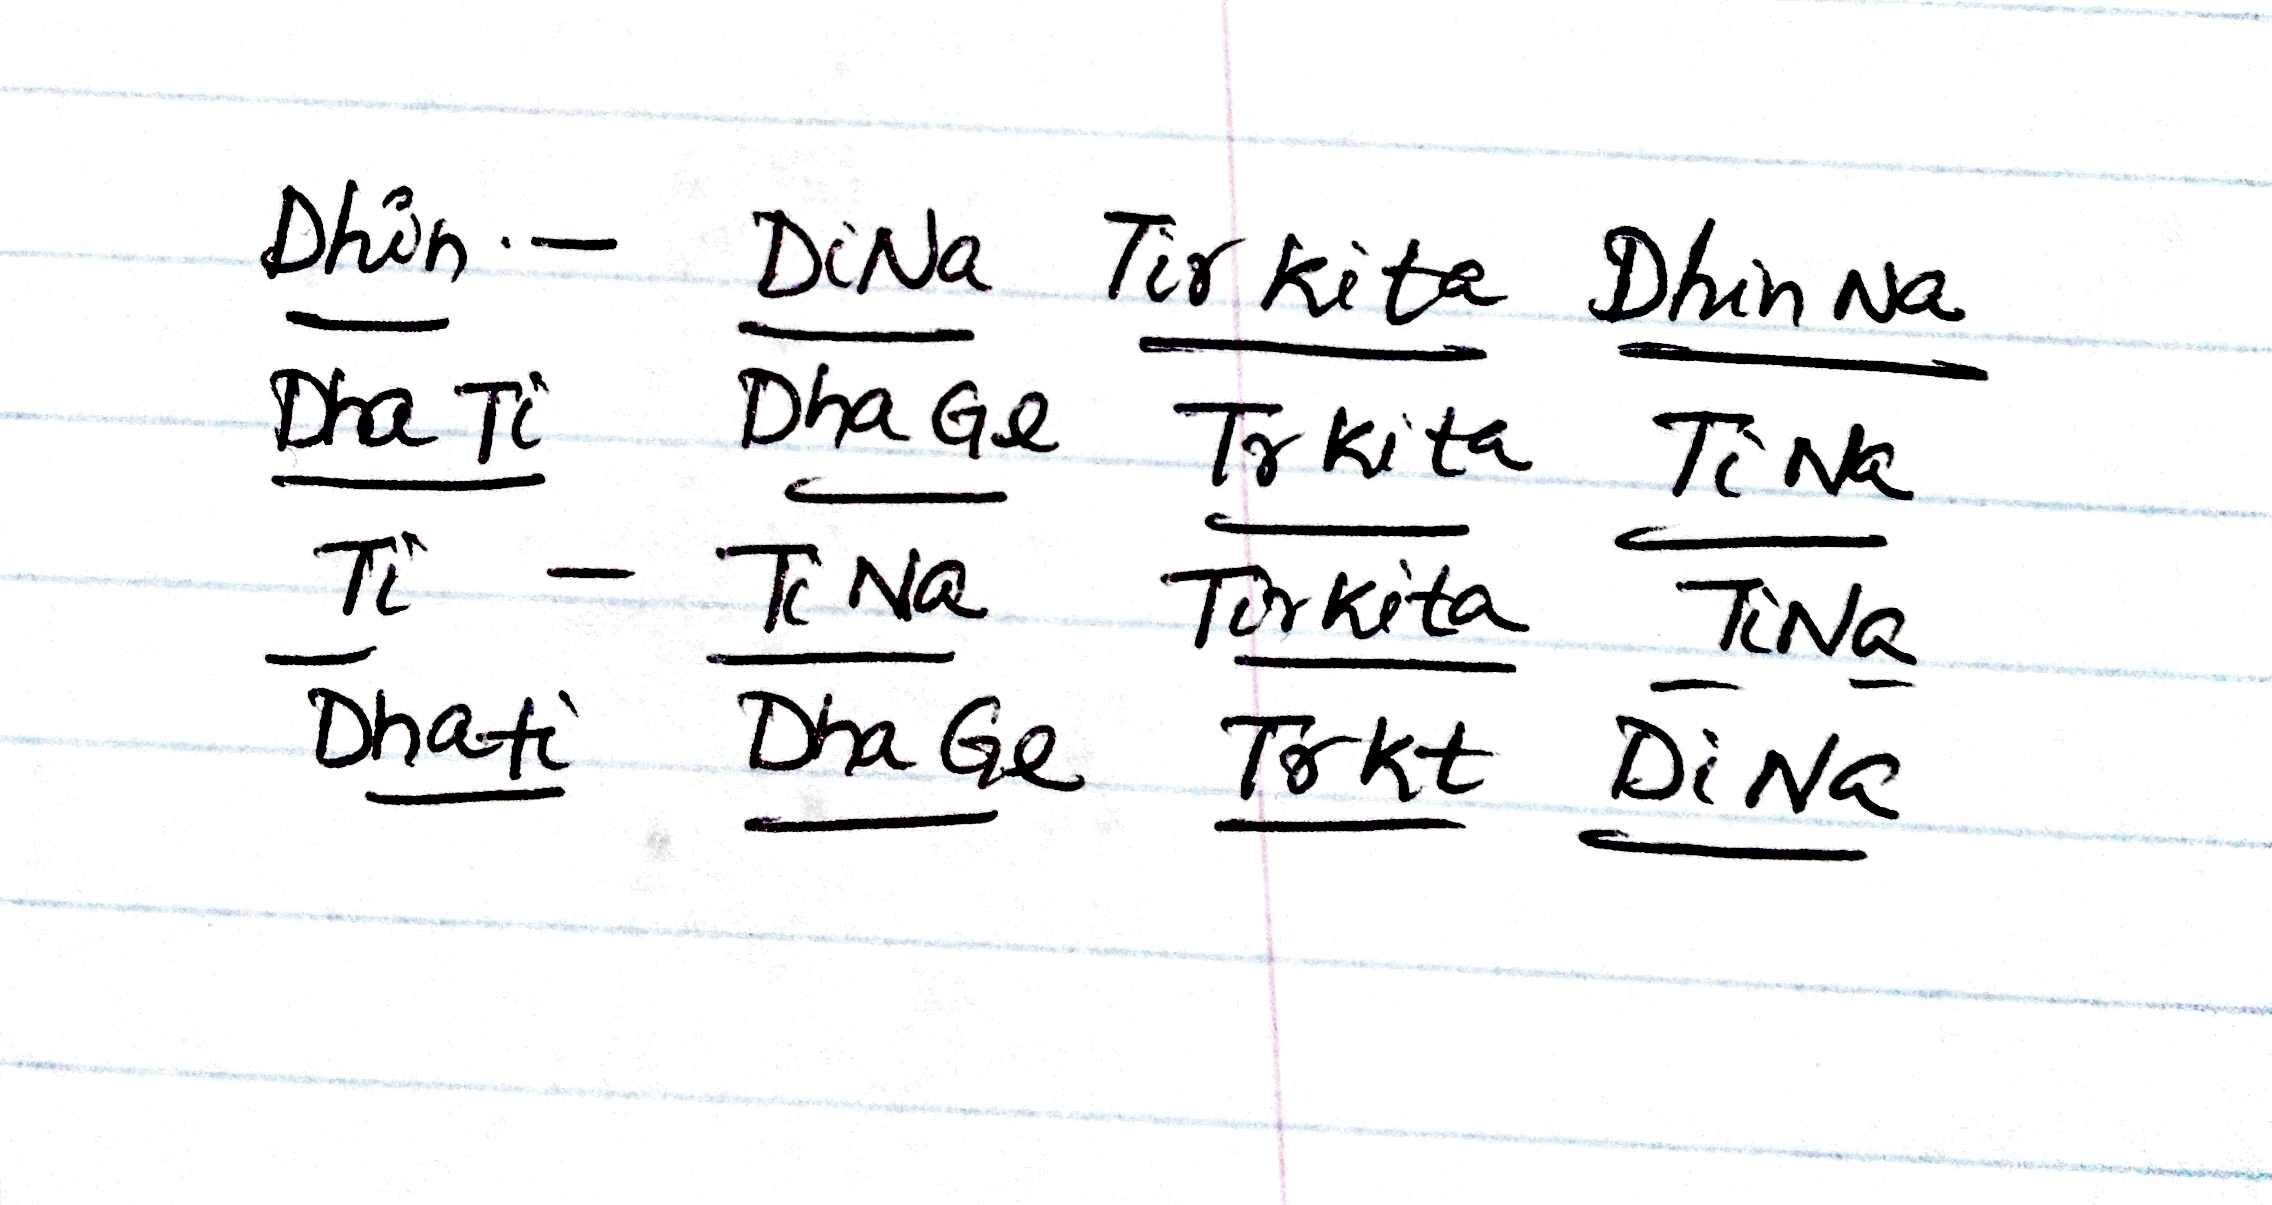 Dhin - DiNa Tirkita DhinNa
DhaTi DhaGe Trkita TiNa
Ti - TiNa Tirkita TiNa
Dhati DhaGe Trkt DiNa